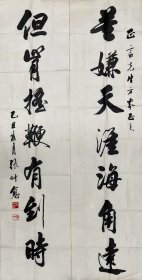 先生方家正之
莫嫌天涯海角遠
但肯搖鞭有到時
乙丑年夏張仲愈